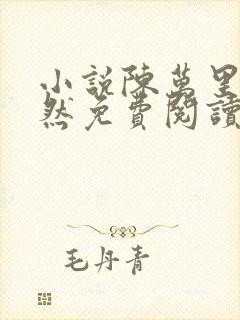 小說陳萬里
然免費閱讀
毛丹青